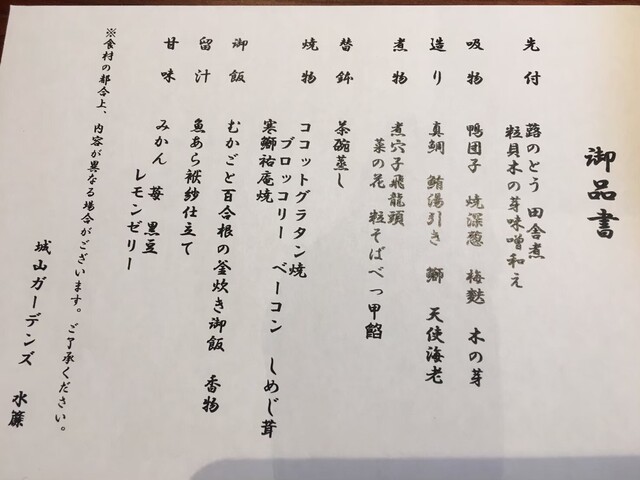 御品書
先付　蕗のとう　田舎煮
粒貝木の芽味噌和え
吸物　鴨団子　焼深葱　梅麩　木の芽
造り　真鯛　鮪湯引き　鰤　天使海老
煮物　煮穴子飛龍頭
菜の花　粒そばべっ甲餡
替鉢　茶碗蒸し
焼物　ココットグラタン焼
ブロッコリー　ベーコン　しめじ茸
寒鰤祐庵焼
御飯　むかごと百合根の釜炊き御飯　香物
留汁　魚あら袱紗仕立て
甘味　みかん　苺　黒豆
レモンゼリー
※食材の都合上、内容が異なる場合がございます。ご了承ください。
城山ガーデンズ　水簾